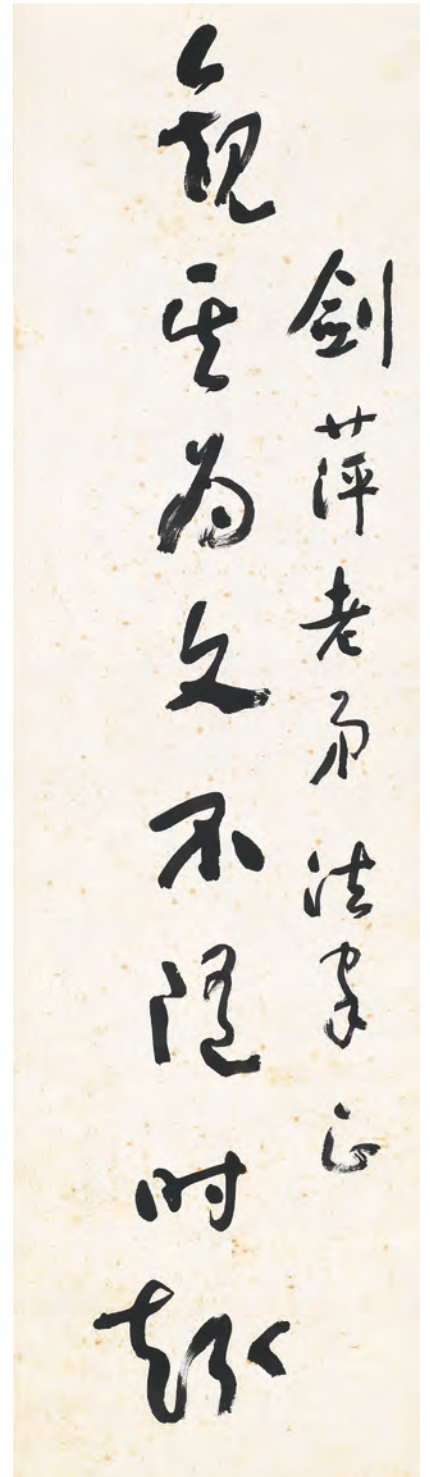 劍萍老弟法家正
觀其為文不隨時趣